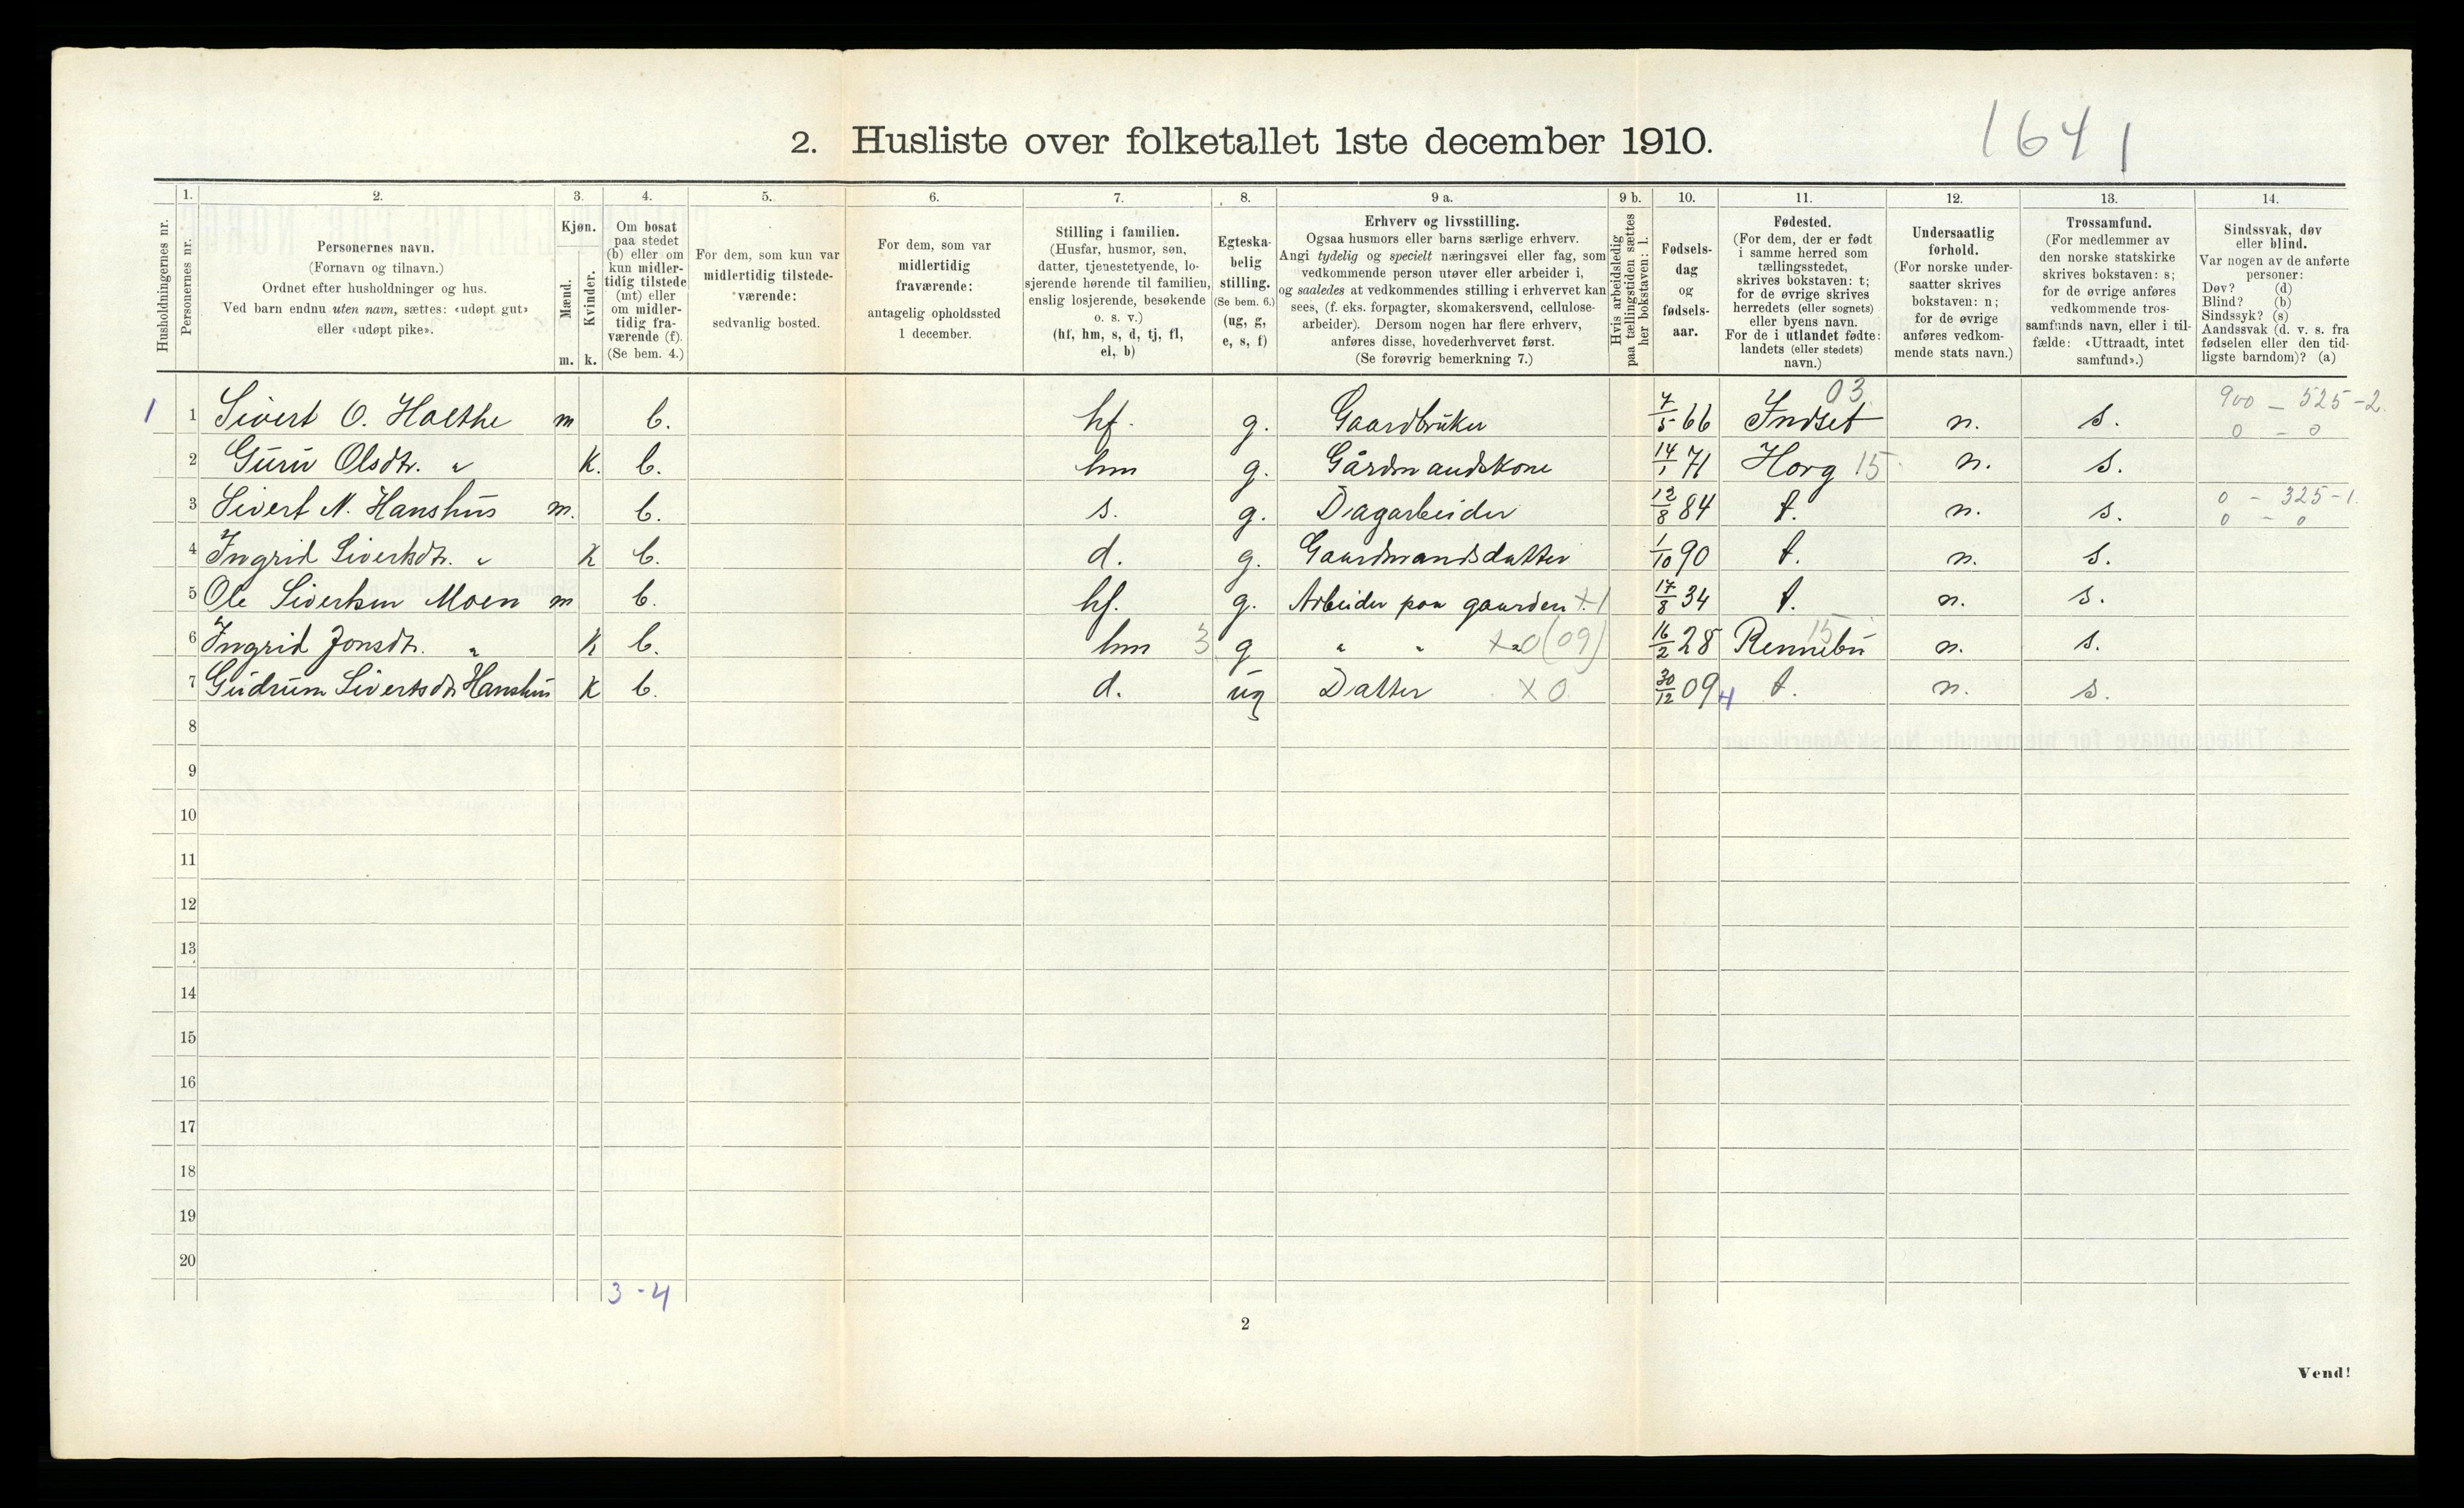 1641
2. Husliste over folketallet 1ste december 1910.
1. 2. 3. 4. 5. 6. 7. 8. 9 a. 9 b. 10. 11. 12. 13. 14.
Husholdningernes nr.
Personernes nr.
Personernes navn.
(Fornavn og tilnavn.)
Ordnet efter husholdninger og hus.
Ved barn endnu uten navn, sættes: «udøpt gut»
eller «udøpt pike».
Kjøn.
Mænd.
Kvinder.
m. k.
Om bosat
paa stedet
(b) eller om
kun midler-
tidig tilstede
(mt) eller
om midler-
tidig fra-
værende (f).
(Se bem. 4.)
For dem, som kun var
midlertidig tilstede-
værende:
sedvanlig bosted.
For dem, som var
midlertidig
fraværende:
antagelig opholdssted
1 december.
Stilling i familien.
(Husfar, husmor, søn,
datter, tjenestetyende, lo-
sjerende hørende til familien,
enslig losjerende, besøkende
o. s. v.)
(hf, hm, s, d, tj, fl,
el, b)
Egteska-
belig
stilling.
(Se bem. 6.)
(ug, g,
e, s, f)
Erhverv og livsstilling.
Ogsaa husmors eller barns særlige erhverv.
Angi tydelig og specielt næringsvei eller fag, som
vedkommende person utøver eller arbeider i,
og saaledes at vedkommendes stilling i erhvervet kan
sees, (f. eks. forpagter, skomakersvend, cellulose-
arbeider). Dersom nogen har flere erhverv,
anføres disse, hovederhvervet først.
(Se forøvrig bemerkning 7.)
Hvis arbeidsledig
paa tællingstiden sættes
her bokstaven: l.
Fødsels-
dag
og
fødsels-
aar.
Fødested.
(For dem, der er født
i samme herred som
tællingsstedet,
skrives bokstaven: t;
for de øvrige skrives
herredets (eller sognets)
eller byens navn.
For de i utlandet fødte:
landets (eller stedets)
navn.)
Undersaatlig
forhold.
(For norske under-
saatter skrives
bokstaven: n;
for de øvrige
anføres vedkom-
mende stats navn.)
Trossamfund.
(For medlemmer av
den norske statskirke
skrives bokstaven: s;
for de øvrige anføres
vedkommende tros-
samfunds navn, eller i til-
fælde: «Uttraadt, intet
samfund».)
Sindssvak, døv
eller blind.
Var nogen av de anførte
personer:
Døv? (d)
Blind? (b)
Sindssyk? (s)
Aandssvak (d. v. s. fra
fødselen eller den tid-
ligste barndom)? (a)
03 900 - 525-2.
1 1 Sivert O. Holthe m b. hf. g. Gaardbruker 7/5 66 Indset n. s. 0 - 0
2 Guru Olsdtr. " K. b. hm g. Gårdmandskone 14/1 71 Horg 15 n. s.
3 Sivert N. Hanshus m. b. s. g. Dagarbeider 12/8 84 t. n. s. 0 - 325-1.
0 - 0
4 Ingrid Sivertsdtr. " K b. d. g. Gaardmandsdatter 1/10 90 t. n. s.
5 Ole Sivertsen Moen m b. hf. g. Arbeider paa gaarden x.1 17/8 34 t. n. s.
6 Ingrid Jonsdtr. " K b. hm 3 g " " x0 (09) 16/2 28 Rennebu 15 n. s.
7 Gudrun Sivertsdtr Hanshus K b. d. ug Datter x 0 30/12 09 4 t. n. s.
8
9
10
11
12
13
14
15
16
17
18
19
20
3-4
2
Vend!